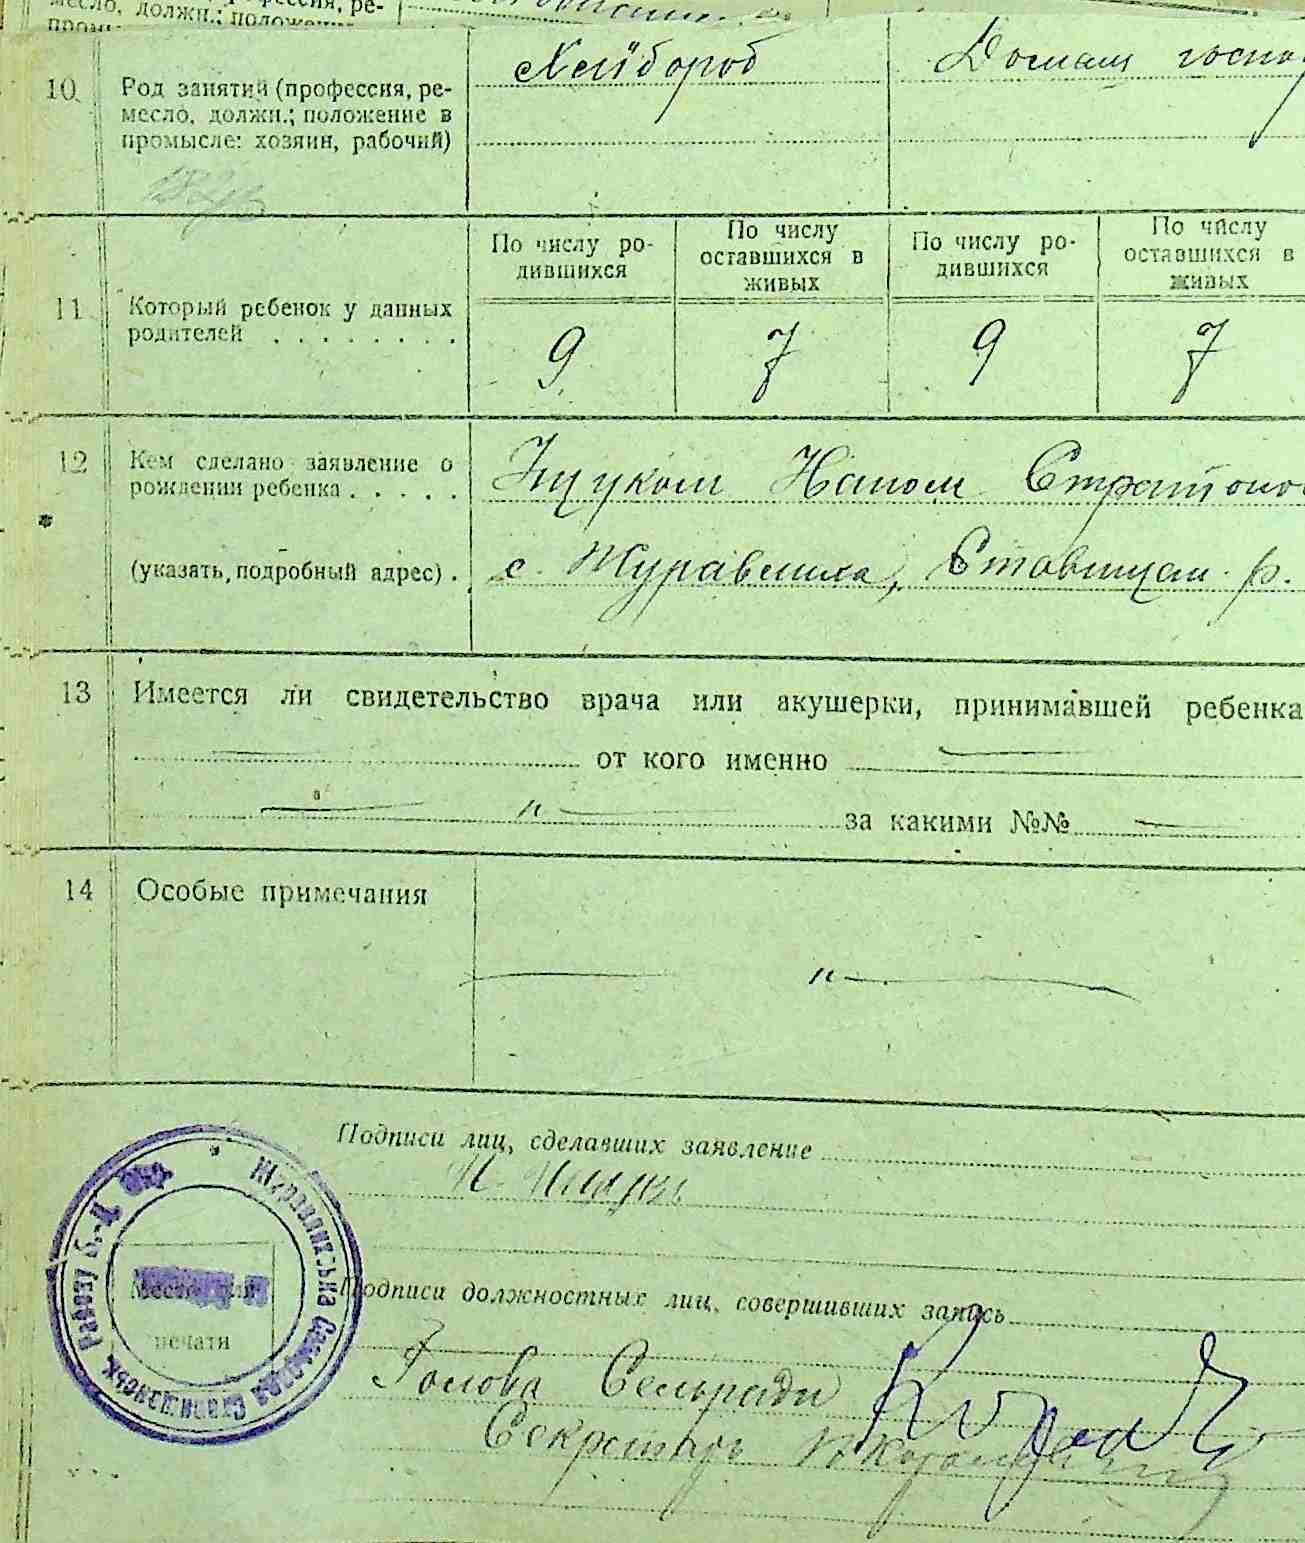 месло, должн.; положение
10 Род занятий (профессия, ре-
месло, должн.; положение в
промысле: хозяин, рабочий)
Хлiбороб
Домаш госпо
11 Который ребенок у данных
родителей . . . . . . . .
По числу ро-
дившихся
По числу
оставшихся в
живых
По числу ро-
дившихся
По числу
оставшихся в
живых
9 7 9 7
12 Кем сделано заявление о
рождении ребенка . . . . .
(указать, подробный адрес) .
с. Журавлиха, Ставищан. р.
13 Имеется ли свидетельство врача или акушерки, принимавшей ребенка
от кого именно
за какими №№
14 Особые примечания
Подписи лиц, сделавших заявление
Место для
печати
Подписи должностных лиц, совершивших запись
Голова Сельради
Секретарь